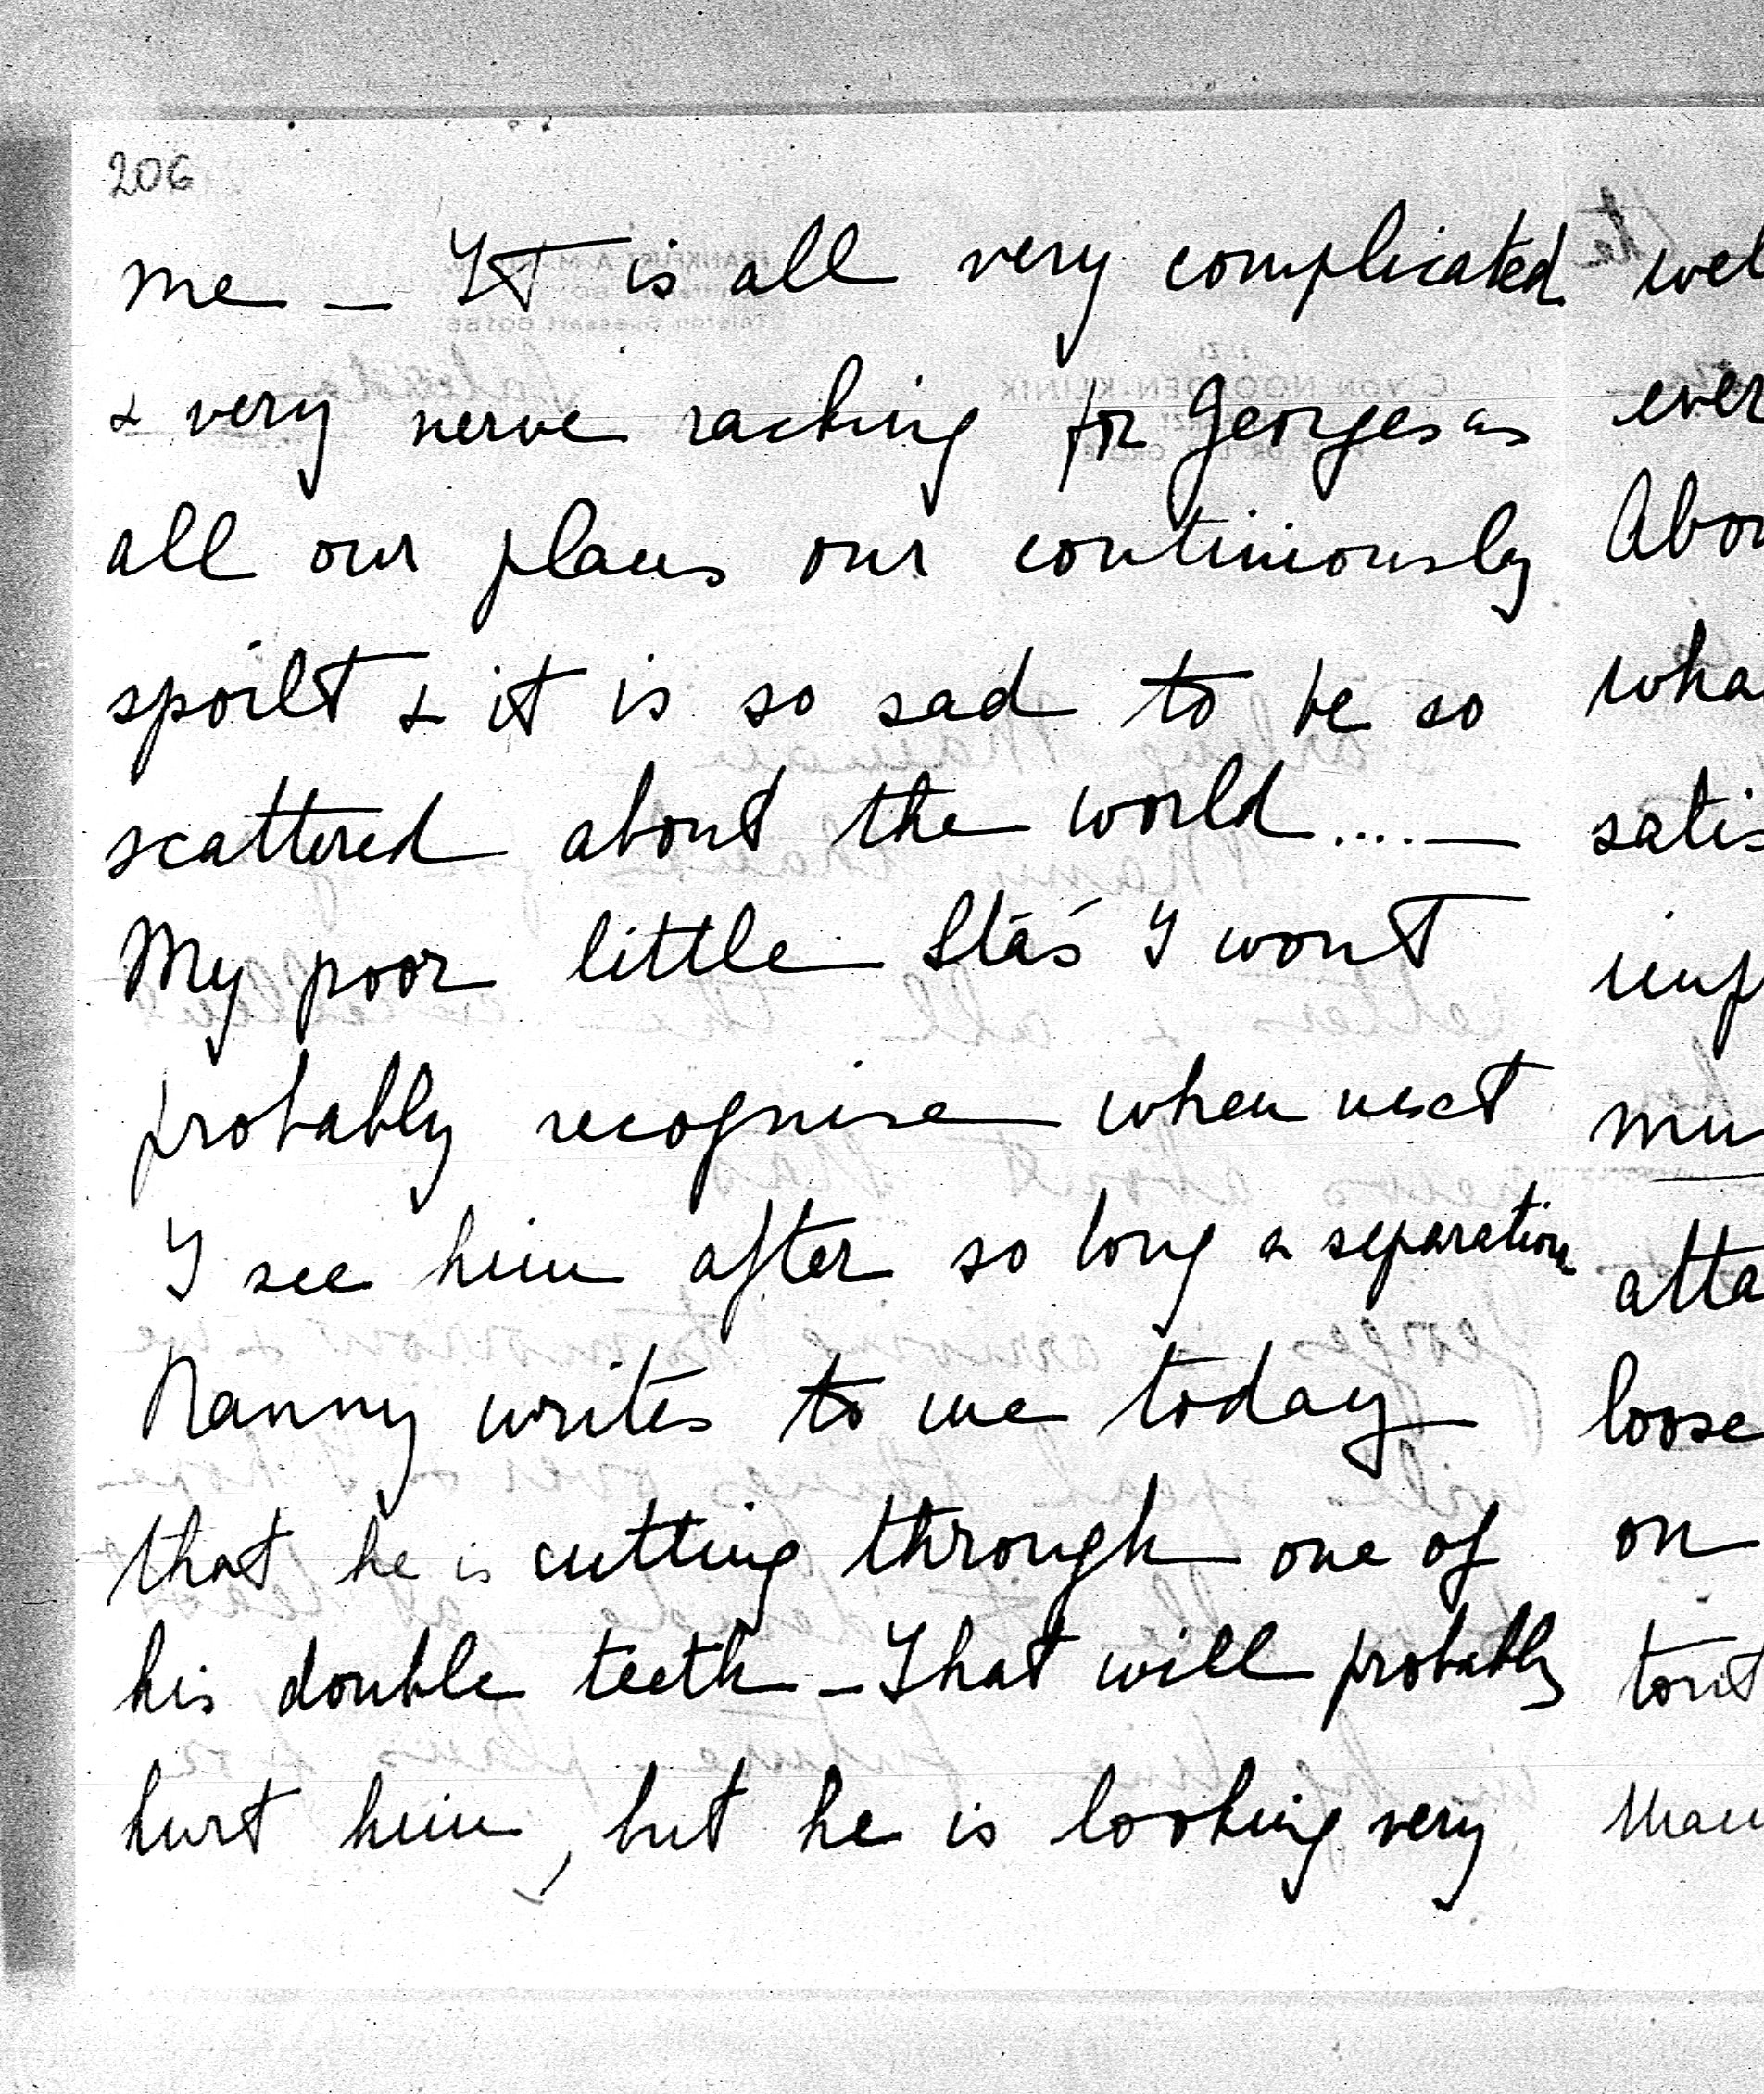 206
me — It is all very complicated
& very nerve racking for Georges as
all our plans our continiously
spoilt & it is so sad to be so
scattered about the world....—
My poor little Stás I wont
probably recognise when next
I see him after so long a separation
Nanny writes to me today
that he is cutting through one of
his double teeth — That will probably
hurt him, but he is looking very
wel
ever
Abou
wha
satis
imp
mu
atta
loose
on
tout
Mam